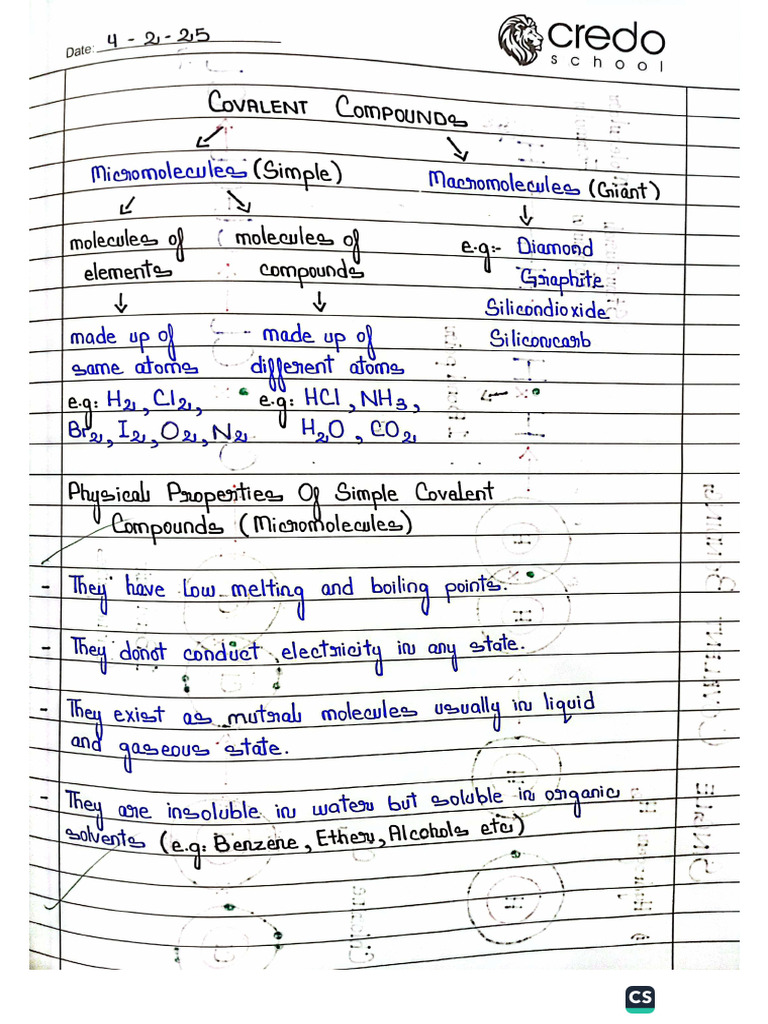 Date: 4 - 2 - 25
credo
school
COVALENT COMPOUNDS
Micromolecules (Simple)
Macromolecules (Giant)
molecules of elements
molecules of compounds
e.g:- Diamond
Graphite
Silicondioxide
Siliconcarb
made up of same atoms
e.g: H2, Cl2,
Br2, I2, O2, N2
made up of different atoms
e.g: HCl, NH3,
H2O, CO2
Physical Properties Of Simple Covalent
Compounds (Micromolecules)
- They have low melting and boiling points.
- They donot conduct electricity in any state.
- They exist as mutral molecules usually in liquid
and gaseous state.
- They are insoluble in water but soluble in organic
solvents (e.g: Benzene, Ether, Alcohols etc)
CS